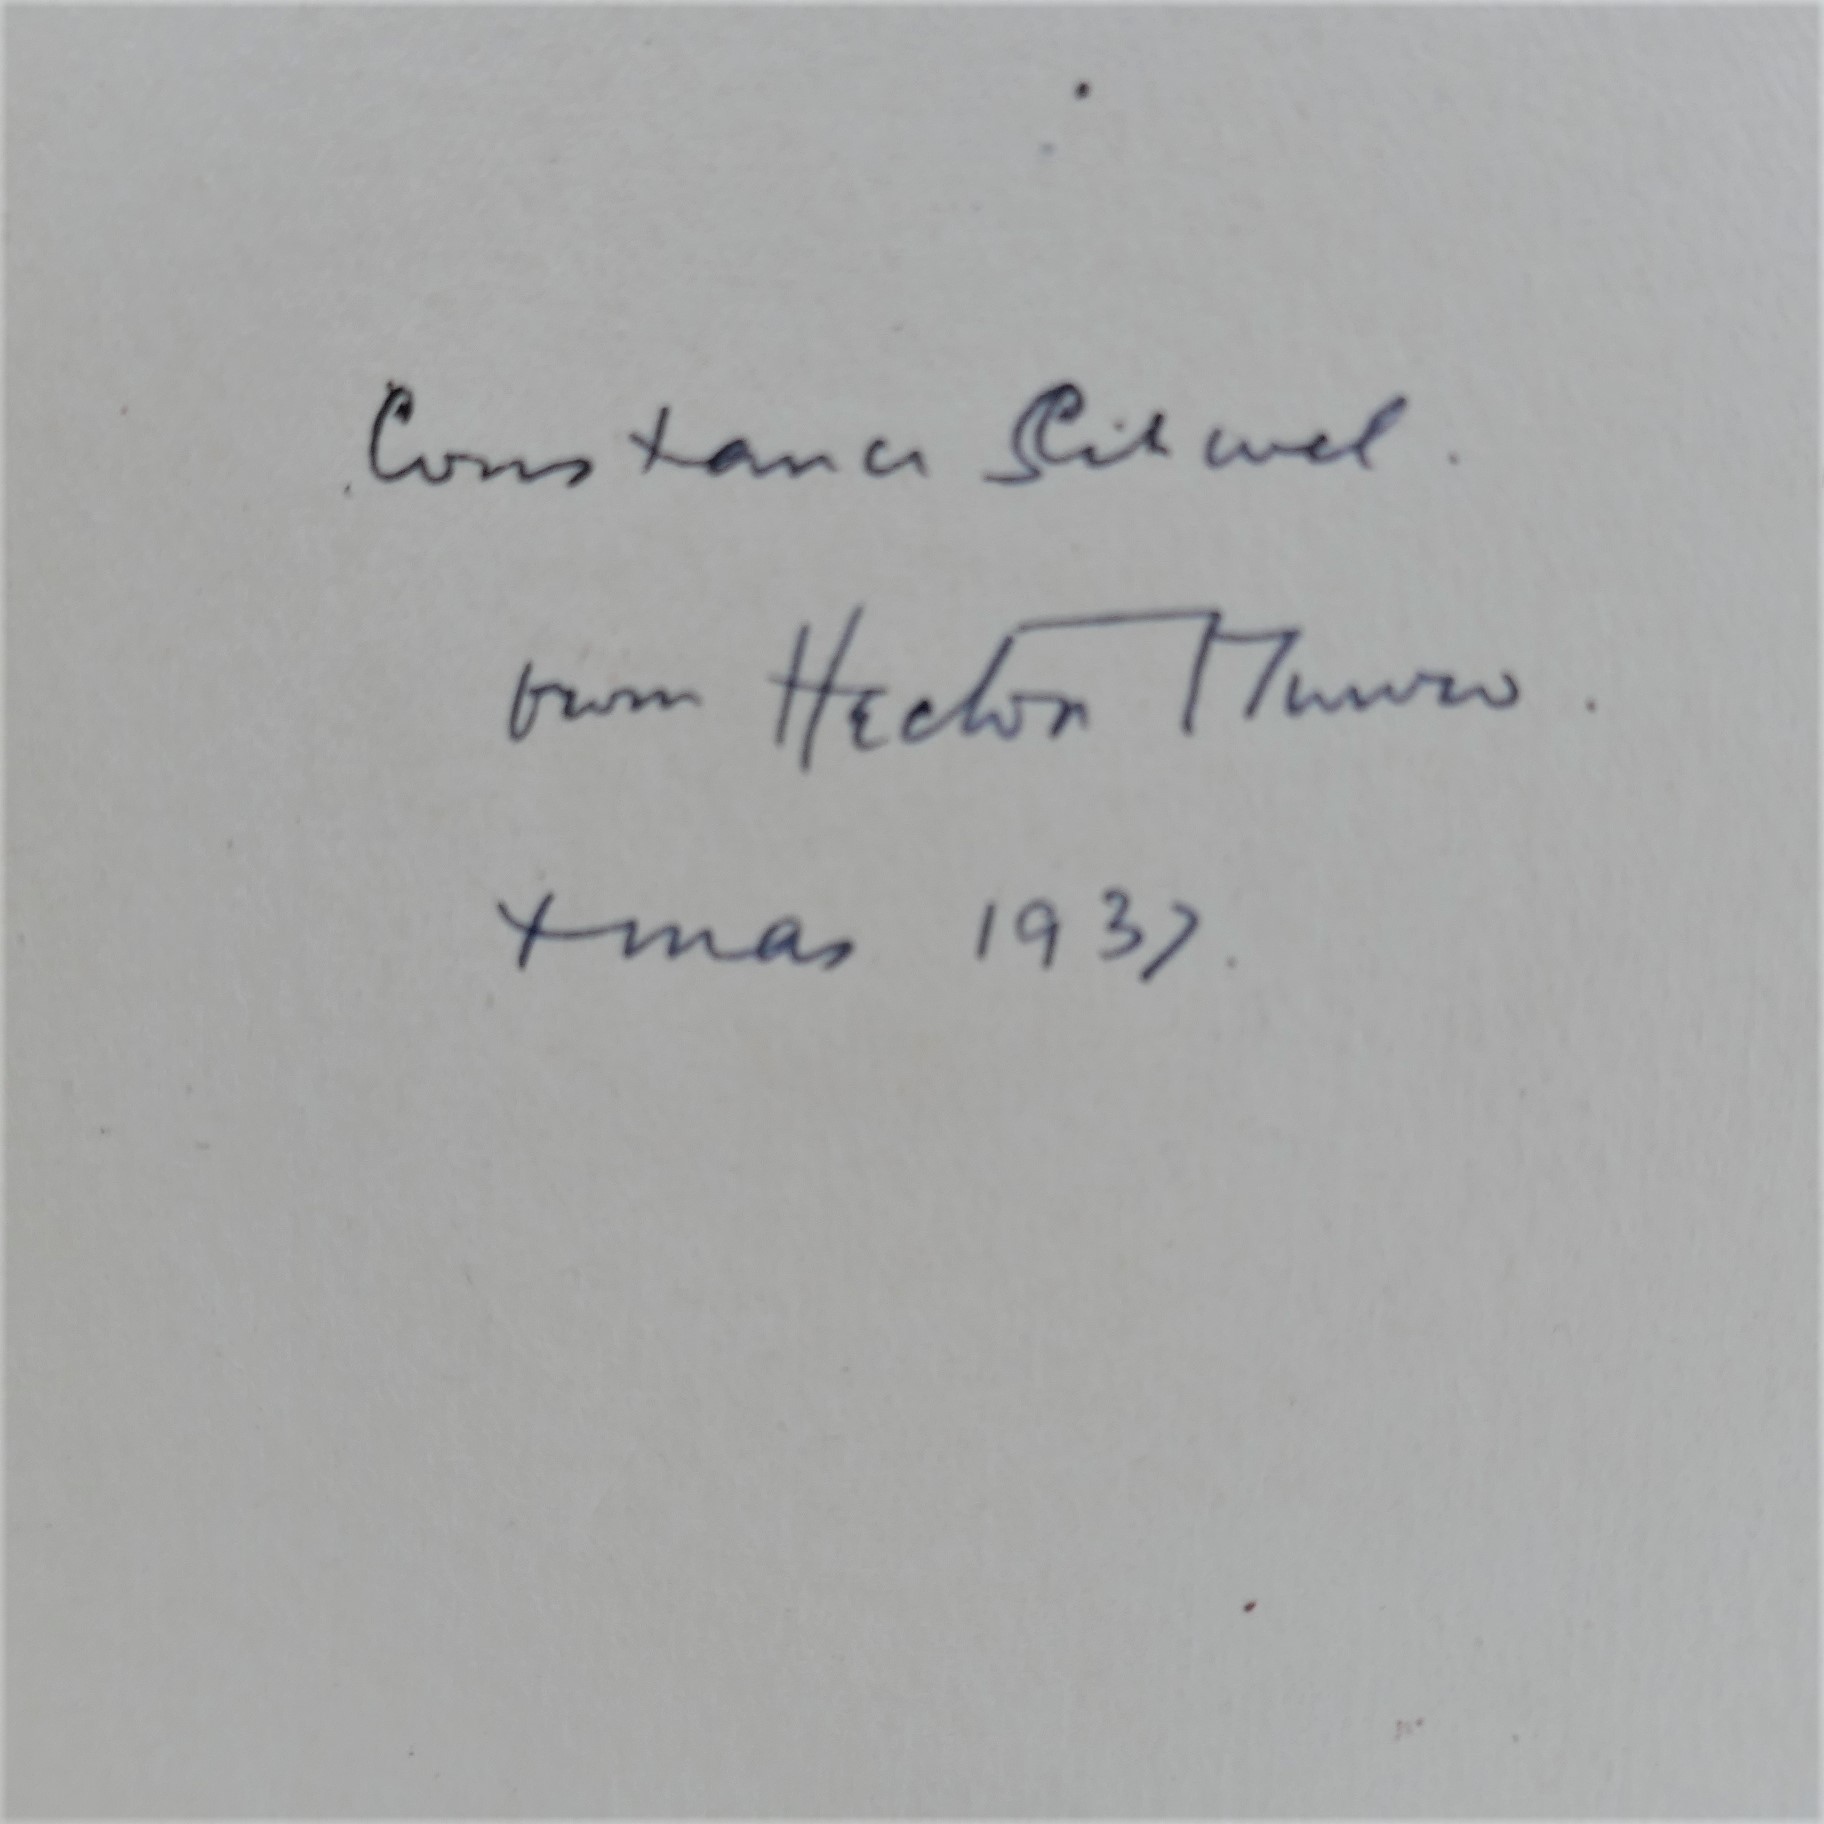 Constance Sitwell.
from Hector Munro.
Xmas 1937.